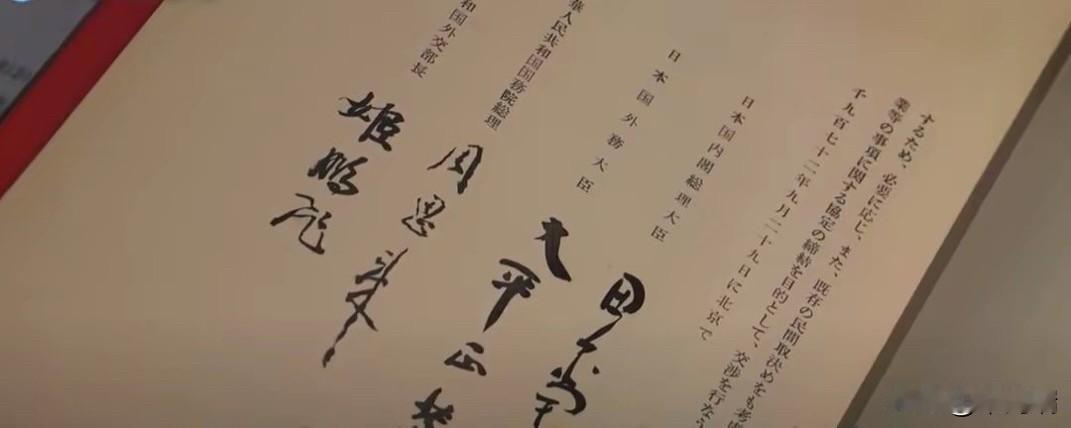 するため、必要に応じ、また、既存の民間取決めをも考
業等の事項に関する協定の締結を目的として、交渉を行なう
千九百七十二年九月二十九日に北京で
日本国内閣総理大臣
田中角栄
日本国外務大臣
大平正芳
華人民共和国国務院総理
周恩来
和国外交部長
姬鹏飞